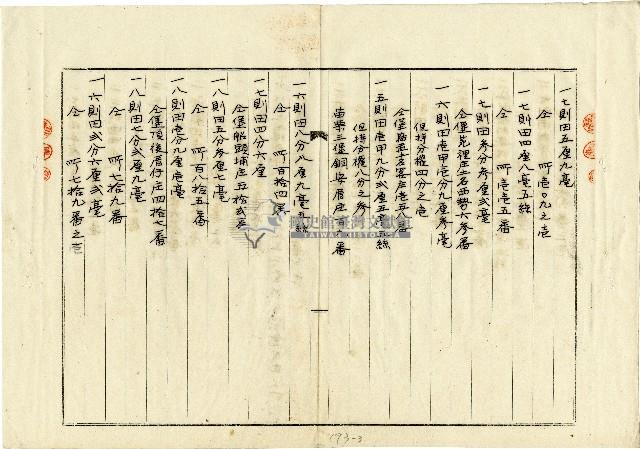 一七則田五厘九毫
仝 所壱〇九之壱
一七則田四厘八毫五絲
仝 所壱壱五番
一七則田参分参厘弐毫
仝堡苑裡庄土名西勢六参番
一六則田壱甲壱分九厘参毫
但持分權四分之壱
仝堡
庄五八番
一五則田壱甲九分弐厘五毫五絲
但持分權八分之参
苗栗三堡銅安厝庄
番
一六則田八分八厘九毫五絲
仝 所百拾四番
一七則田四分六厘
仝堡船頭埔庄五拾弐番
一八則田五分参厘七毫
仝 所百八拾五番
一八則田壱分九厘壱毫
仝堡頂後厝仔庄四拾七番
一八則田七分弐厘九毫
仝 所七拾九番
一六則田弐分六厘弐毫
仝 所七拾九番之壱
國史館臺灣文獻館
TAIWAN HISTORICA
193-3